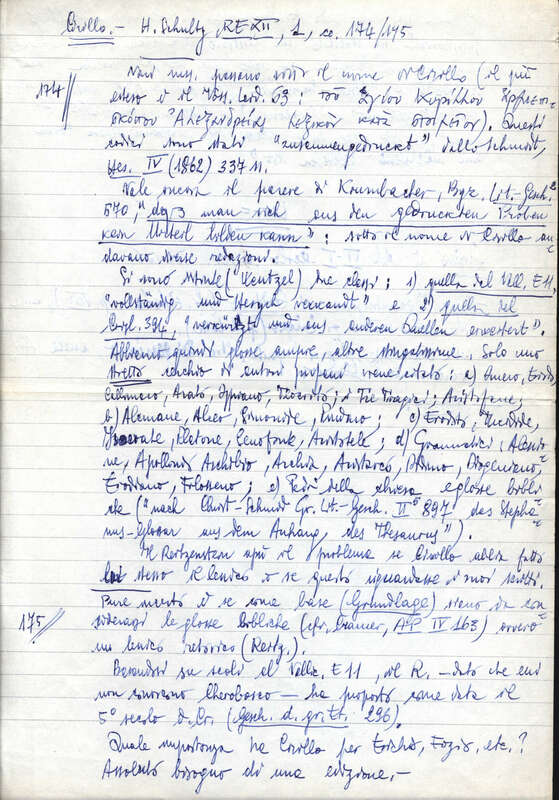 Cirillo.- H. Schultz RE XII, 1, co. 174/175
174// Vari mss. passano sotto il nome di Cirillo (il più
esteso è il Voss. Leid. 63: τοῦ ἁγίου Κυρίλλου Ἀρχιεπι-
σκόπου Ἀλεξανδρείας λεξικὸν κατὰ στοιχεῖον). Questi
codici sono stati "zusammengedruckt" dallo Schmidt,
Hes. IV (1862) 337 ff.
Vale ancora il parere di Krumbacher, Byz. Lit.-Gesch.²
570, "daß man sich aus den gedruckten Proben
kein Urteil bilden kann": sotto il nome di Cirillo an-
davano diverse redazioni.
Si sono distinte (Rentzel) due classi: 1) quella del Vall. E 11,
"vollständig und Hesych verwandt" e 2) quella del
394, "verkürzt und aus anderen Quellen erweitert".
Abbiamo quindi glosse ampie, altre Solo uno
stretto cerchio di autori profani viene citato: a) Omero, Esiodo,
Callimaco, Arato, Oppiano, Teocrito; i Tre Tragici; Aristofane;
b) Alcmane, Alceo, Simonide, Pindaro; c) Erodoto, Tucidide,
Isocrate, Platone, Senofonte, Aristotele; d) Grammatici: Alessio-
ne, Apollonio Archibio, Archia, Aristarco, Didimo, Diogeniano,
Erodiano, Filosseno; e) Padri della chiesa e glosse bibli-
che ("nach Christ-Schmid Gr. Lit.-Gesch. II⁵ 897 das Stepha-
nus-Glossar aus dem Anhang des Thesaurus").
Il Reitzenstein aprì il problema se Cirillo abbia fatto
lui stesso il lessico o se questo riguardasse i suoi scritti.
175// Pure incerto è se come base (Grundlage) siano da con-
siderarsi le glosse bibliche (cfr. Cramer, AP IV 163) ovvero
un lessico retorico (Reitz.).
Basandosi su scolî al Vallic. E 11, il R. - dato che essi
non conoscono Cherobosco - ha proposto come data il
5° secolo d. Cr. (Gesch. d. gr. Et. 296).
Quale importanza ha Cirillo per Esichio, Fozio, etc.?
Assoluto bisogno di una edizione.-